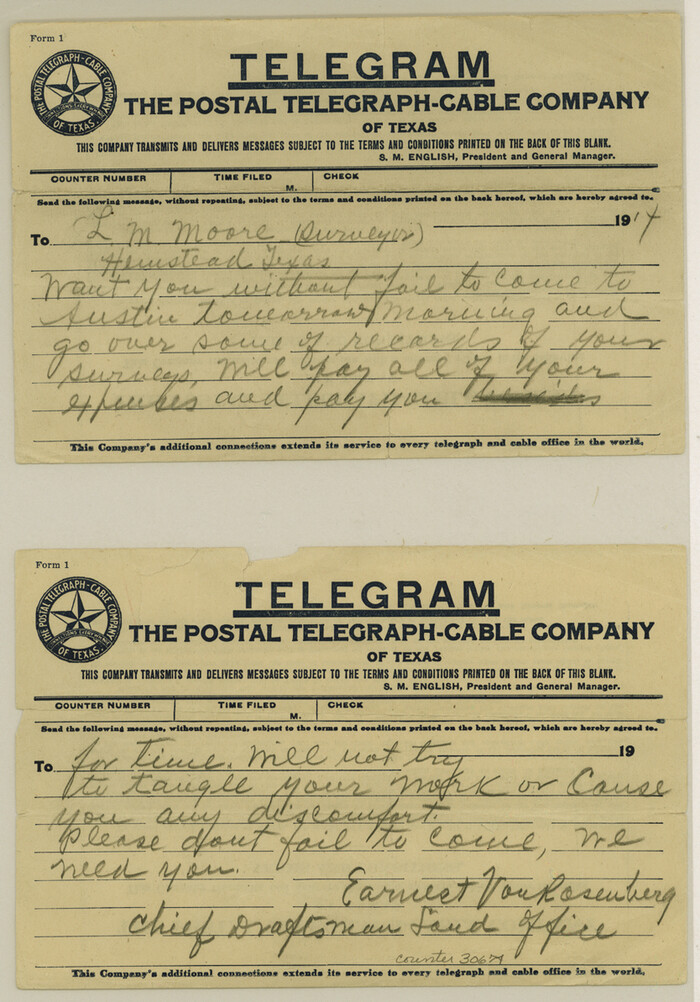 Form 1
THE POSTAL TELEGRAPH-CABLE COMPANY
OF TEXAS
TELEGRAM
THE POSTAL TELEGRAPH-CABLE COMPANY
OF TEXAS
THIS COMPANY TRANSMITS AND DELIVERS MESSAGES SUBJECT TO THE TERMS AND CONDITIONS PRINTED ON THE BACK OF THIS BLANK.
S. M. ENGLISH, President and General Manager.
COUNTER NUMBER TIME FILED M. CHECK
Send the following message, without repeating, subject to the terms and conditions printed on the back hereof, which are hereby agreed to.
1914
To L M Moore (Surveyor)
Hemstead Texas
Want you without fail to come to
Austin tomorrow morning and
go over some of records of your
surveys, Will pay all of your
expenses and pay you
This Company's additional connections extends its service to every telegraph and cable office in the world.
Form 1
THE POSTAL TELEGRAPH-CABLE COMPANY
OF TEXAS
TELEGRAM
THE POSTAL TELEGRAPH-CABLE COMPANY
OF TEXAS
THIS COMPANY TRANSMITS AND DELIVERS MESSAGES SUBJECT TO THE TERMS AND CONDITIONS PRINTED ON THE BACK OF THIS BLANK.
S. M. ENGLISH, President and General Manager.
COUNTER NUMBER TIME FILED M. CHECK
Send the following message, without repeating, subject to the terms and conditions printed on the back hereof, which are hereby agreed to.
To for time. Will not try 19
to tangle your work or Cause
you any discomfort.
Please dont fail to come, We
need you.
Earnest Von Rosenberg
Chief Draftsman Land Office
counter 30674
This Company's additional connections extends its service to every telegraph and cable office in the world.